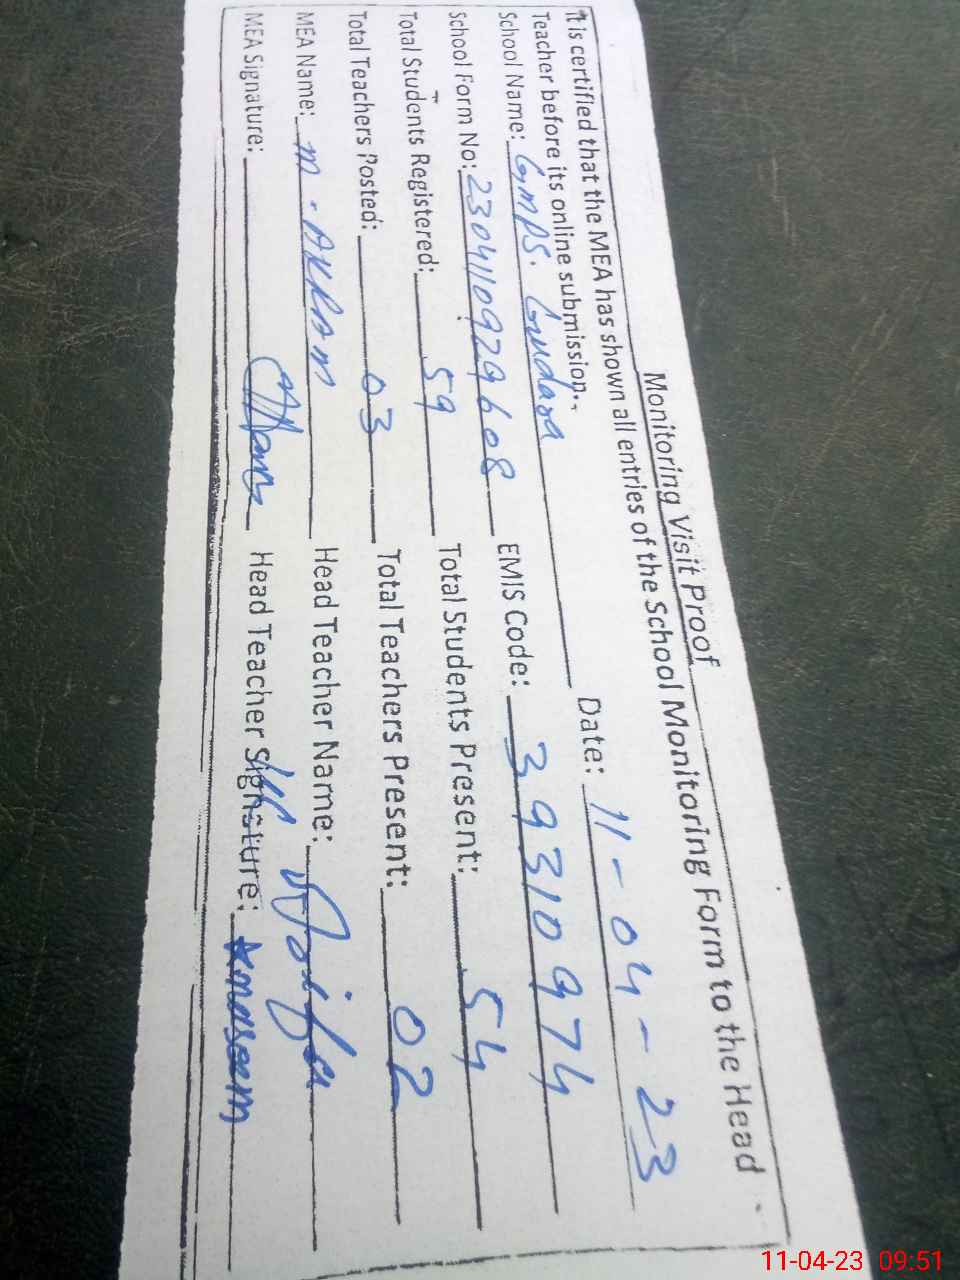 Monitoring Visit Proof
It is certified that the MEA has shown all entries of the School Monitoring Form to the Head
Teacher before its online submission..
School Name: GMPS. Gudara Date: 11-04-23
School Form No: 2304110929608 EMIS Code: 39310974
Total Students Registered: 59 Total Students Present: 54
Total Teachers Posted: 03 Total Teachers Present: 02
MEA Name: M. AKRAM Head Teacher Name:
MEA Signature: Head Teacher Signature:
11-04-23 09:51